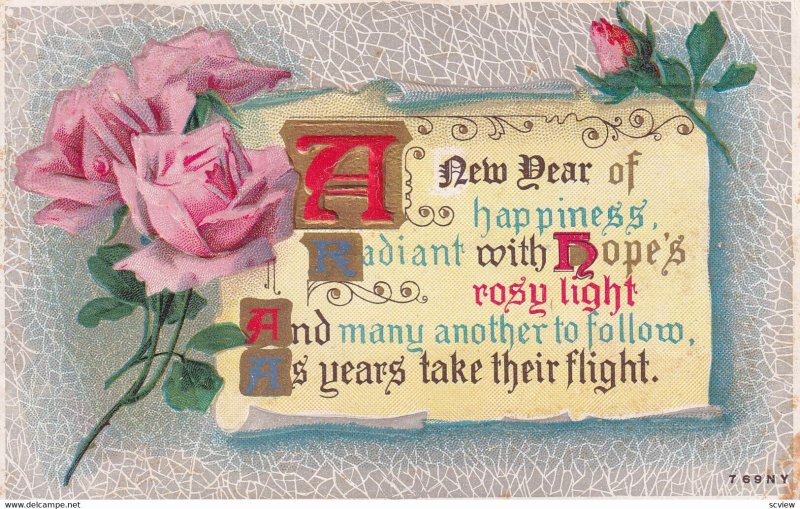 A New Year of
happiness,
Radiant with Hope's
rosy light
And many another to follow,
As years take their flight.
769NY
scview